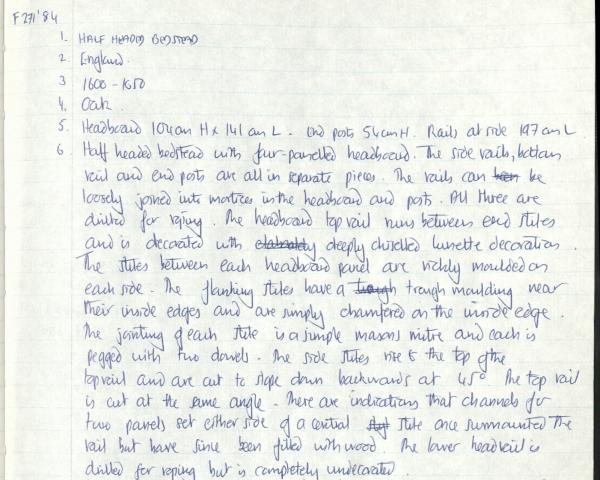 F271'84
1. HALF HEADED BEDSTEAD
2. England.
3 1600-1650
4. Oak.
5. Headboard 104cm H x 141cm L. End posts 54cm H. Rails at side 197cm L
6. Half headed bedstead with four-panelled headboard. The side rails, bottom
rail and end posts are all in separate pieces. The rails can be
loosely joined into mortices in the headboard and posts. All three are
drilled for roping. The headboard top rail runs between end stiles
and is decorated with deeply chiselled lunette decoration.
The stiles between each headboard panel are richly moulded on
each side. The flanking stiles have a trough moulding near
their inside edges and are simply chamfered on the inside edge.
The jointing of each stile is a simple masons mitre and each is
pegged with two dowels. The side stiles rise to the top of the
top rail and are cut to slope down backwards at 45°. The top rail
is cut at the same angle. There are indications that channels for
two panels set either side of a central stile once surmounted the
rail but have since been filled with wood. The lower head rail is
drilled for roping but is completely undecorated.